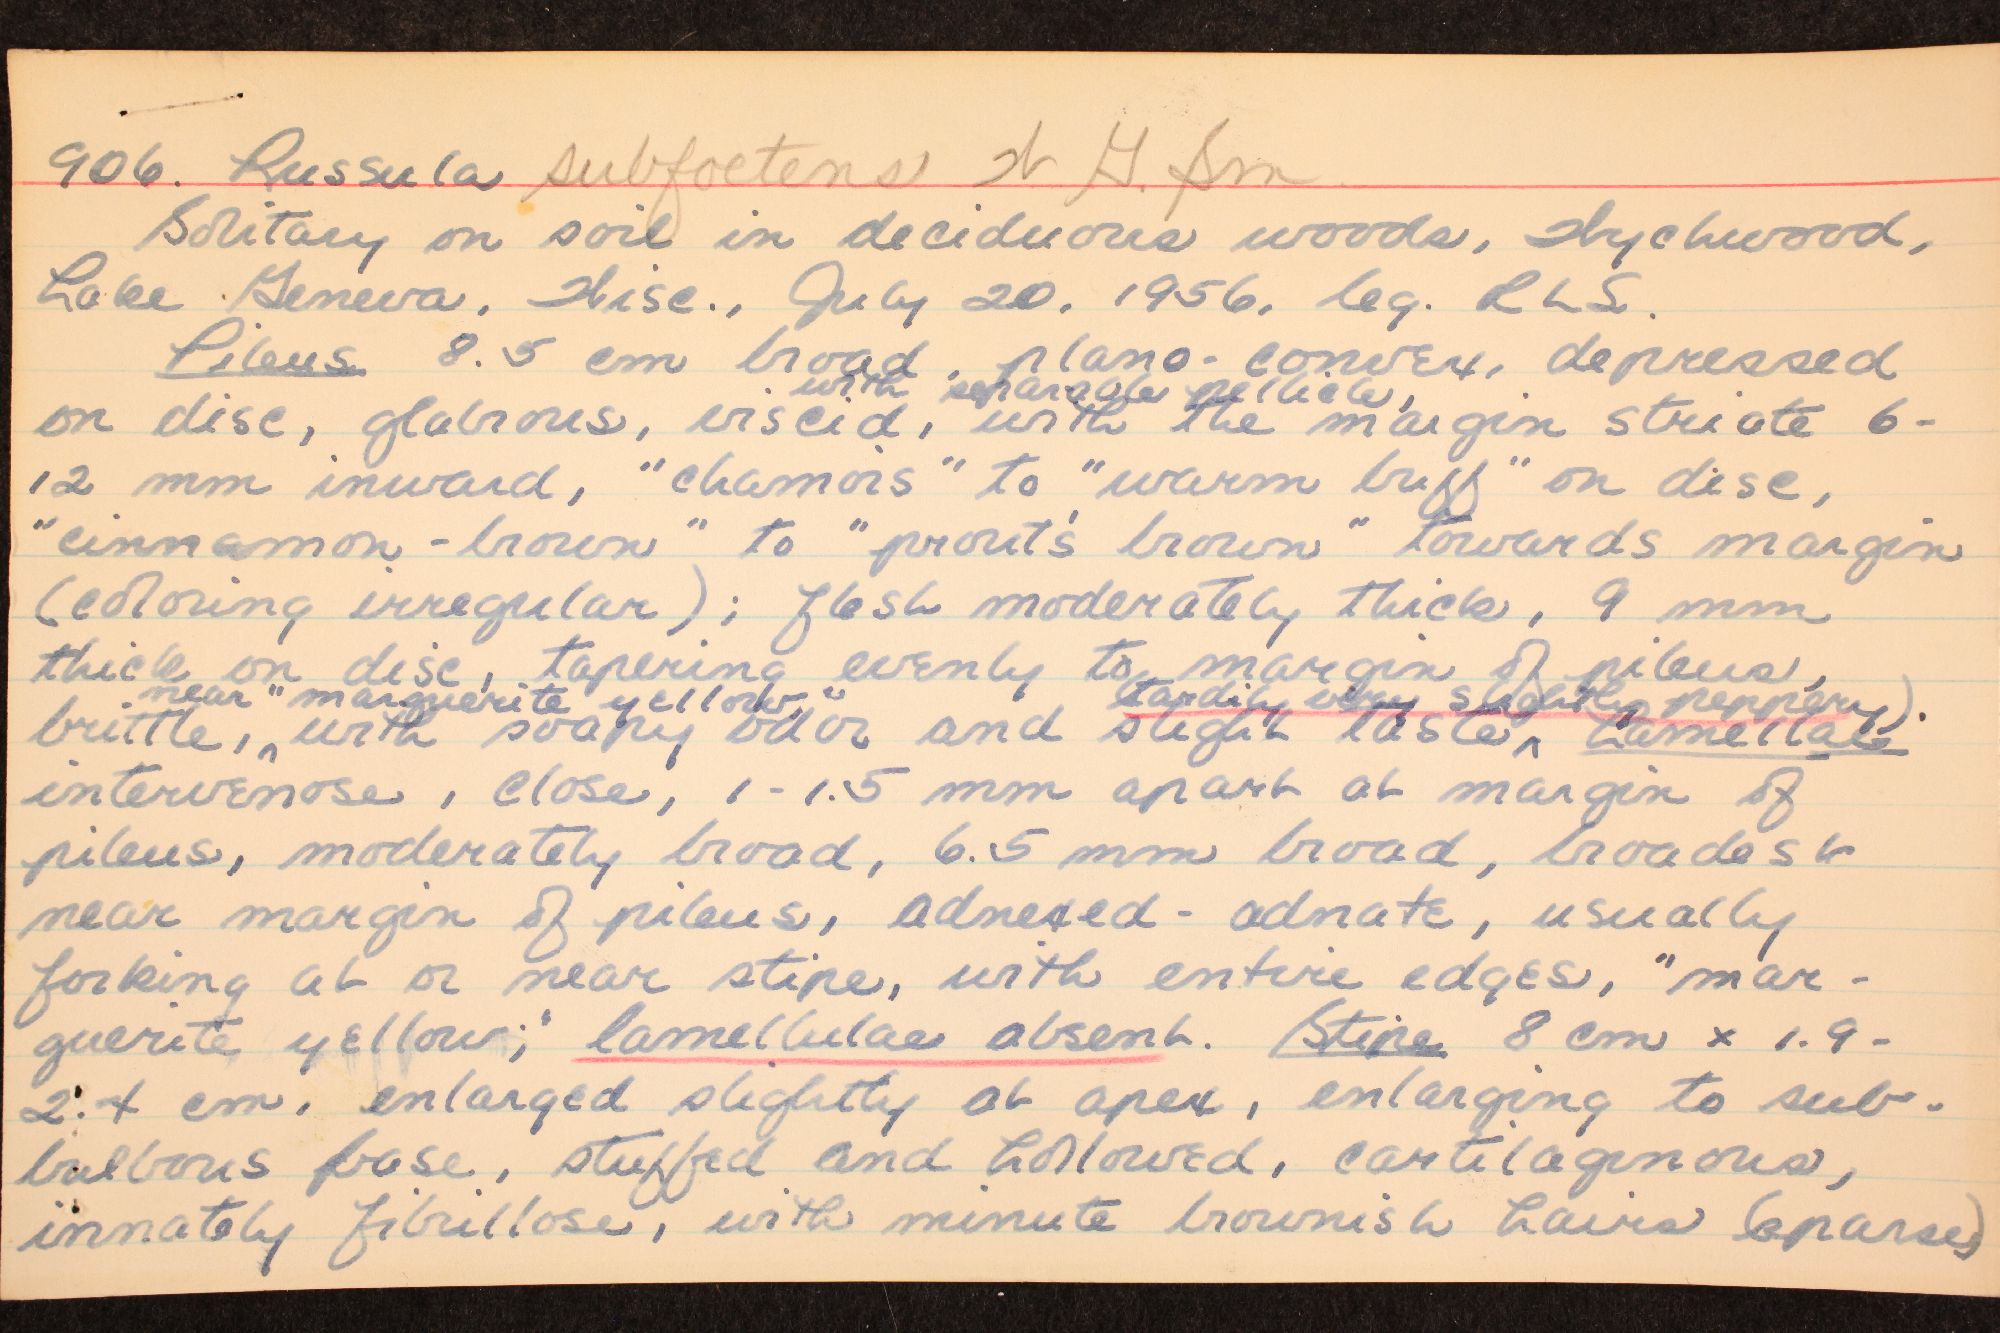 906. Russula subfoetens W. G. Sm
Solitary on soil in deciduous woods, Wychwood,
Lake Geneva, Wisc., July 20, 1956, leg. RLS.
Pileus 8.5 cm broad, plano-convex, depressed
with separable pellicle,
on disc, glabrous, viscid, with the margin striate 6-
12 mm inward, "chamois" to "warm buff" on disc,
"cinnamon-brown" to "prout's brown" towards margin
(coloring irregular); flesh moderately thick, 9 mm
thick on disc, tapering evenly to margin of pileus,
near "marguerite yellow," (tardily very slightly peppery).
brittle, with soapy odor and slight taste. Lamellae
intervenose, close, 1-1.5 mm apart at margin of
pileus, moderately broad, 6.5 mm broad, broadest
near margin of pileus, adnexed-adnate, usually
forking at or near stipe, with entire edges, "mar-
guerite yellow;" lamellulae absent. Stipe 8 cm x 1.9-
2.4 cm, enlarged slightly at apex, enlarging to sub-
bulbous base, stuffed and hollowed, cartilaginous,
innately fibrillose, with minute brownish hairs (sparse)